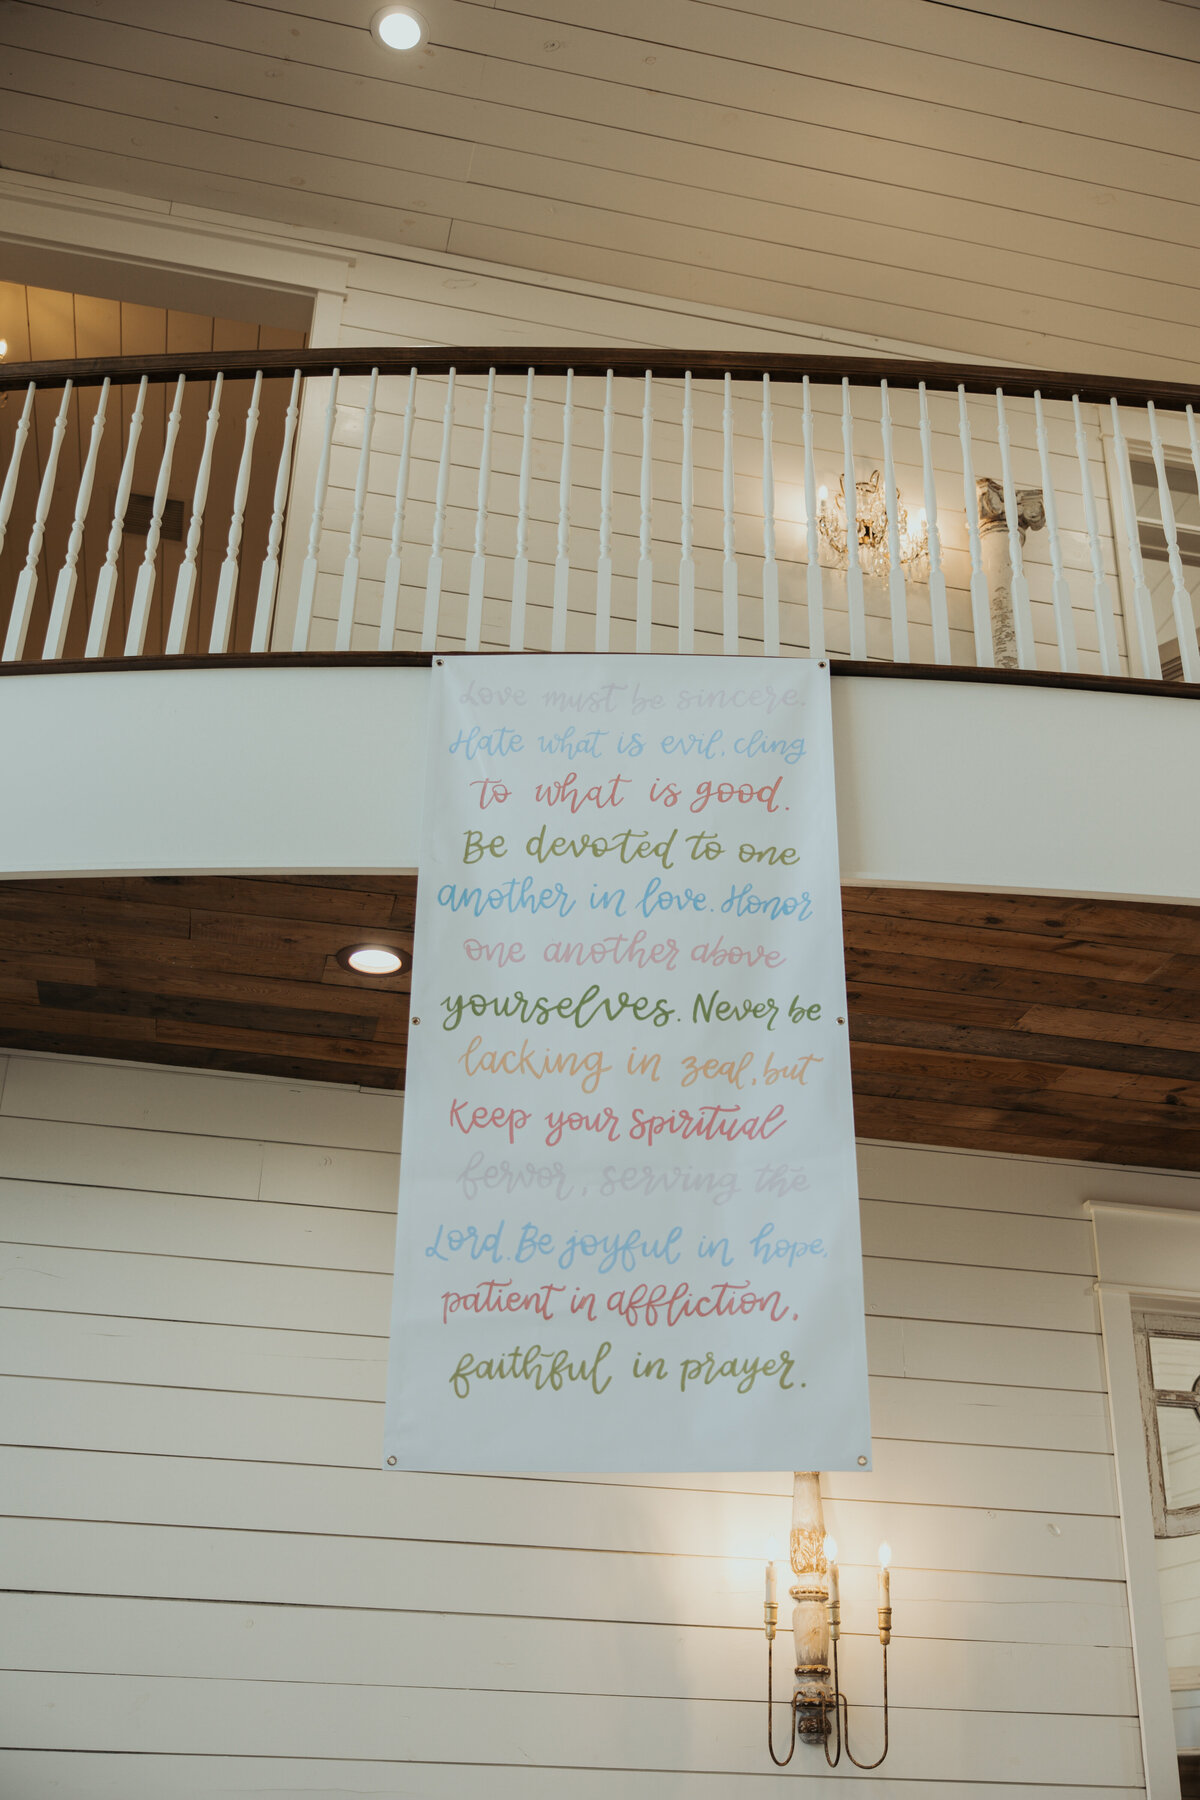 Love must be sincere.
Hate what is evil, cling
to what is good.
Be devoted to one
another in love. Honor
one another above
yourselves. Never be
lacking in zeal, but
Keep your spiritual
fervor, serving the
Lord. Be joyful in hope,
patient in affliction,
faithful in prayer.